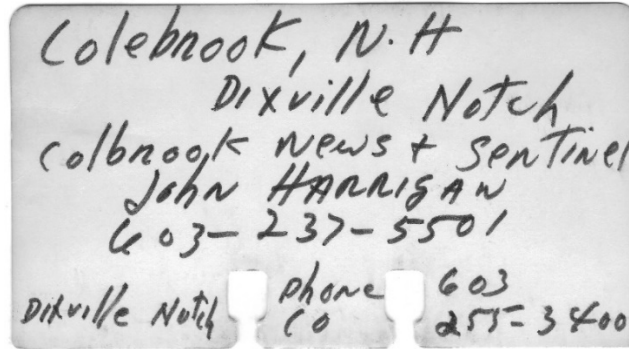 Colebrook, N.H
Dixville Notch
Colbrook News + Sentinel
John HARRIGAN
603-237-5501
Dixville Notch phone 603
CO 255-3400